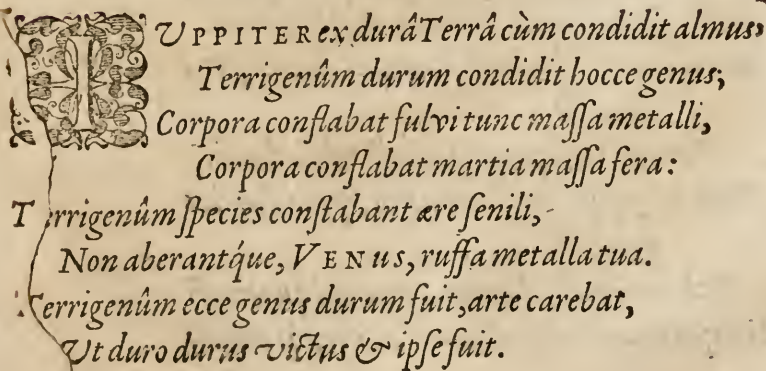 IUPPITER ex durâ Terrâ cùm condidit almus,
Terrigenûm durum condidit hocce genus;
Corpora conflabat fulvi tunc maſſa metalli,
Corpora conflabat martia maſſa fera:
Terrigenûm ſpecies conſtabant ære ſenili,
Non aberantq́ue, VENUS, ruffa metalla tua.
Terrigenûm ecce genus durum fuit, arte carebat,
Ut duro durus victus & ipſe fuit.